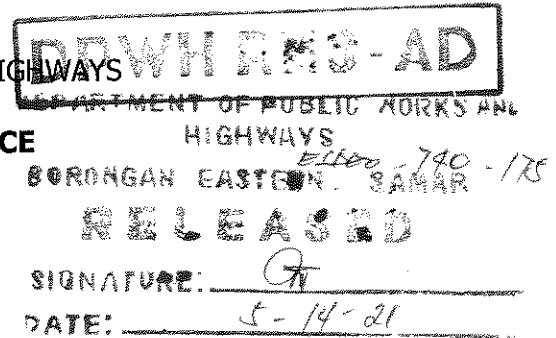 IGHWAYS
DPWH RMS-AD
DEPARTMENT OF PUBLIC WORKS AND
HIGHWAYS
CE
BORONGAN EASTERN SAMAR
740-175
RELEASED
SIGNATURE:
DATE: 5-14-21